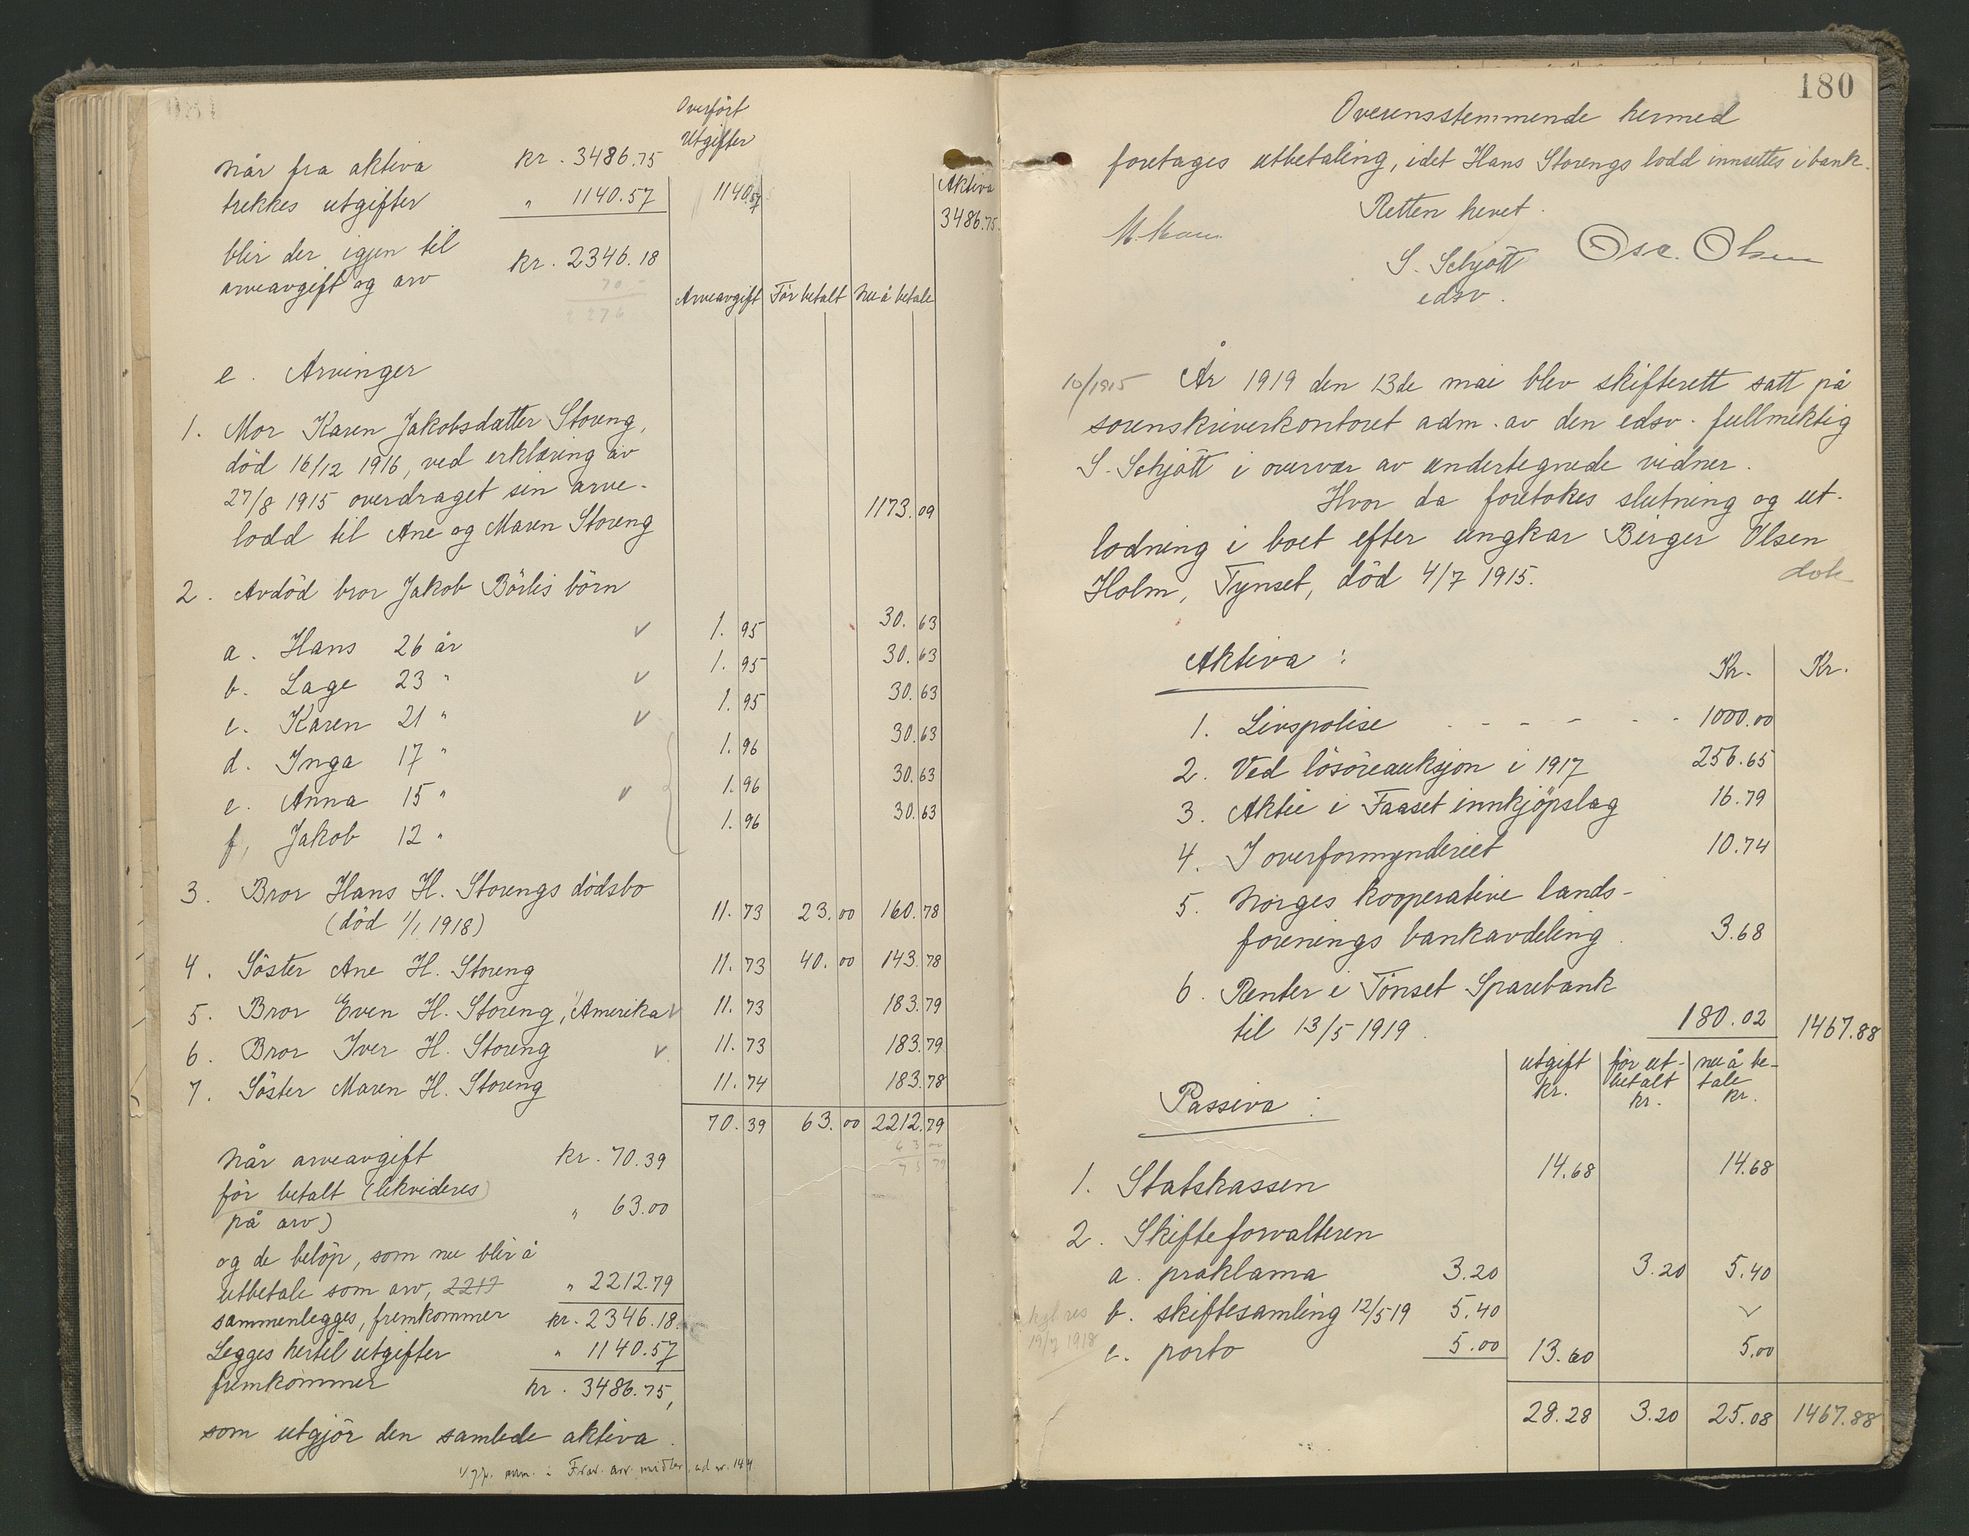 Overført
Utgifter
Når fra aktiva kr. 3486.75
trekkes utgifter " 1140.57 1140.57 Aktiva 3486.75
blir der igjen til
arveavgift og arv kr. 2346.18
70 -
2276
Arveavgift Før betalt Nu å betale
c. Arvinger
1. Mor Karen Jakobsdatter Storeng,
død 16/12 1916, ved erklæring av
27/8 1915 overdraget sin arve-
lodd til Ane og Maren Storeng 1173.09
2. Avdød bror Jakob Börlis börn
a. Hans 26 år v 1.95 30.63
b. Lage 23 " v 1.95 30.63
c. Karen 21 " v 1.95 30.63
d. Inga 17 " 1.96 30.63
e. Anna 15 " v 1.96 30.63
f. Jakob 12 " 1.96 30.63
3. Bror Hans H. Storengs dödsbo
(död 1/1 1918) 11.73 23.00 160.78
4. Söster Ane H. Storeng 11.73 40.00 143.78
5. Bror Even H. Storeng, i Amerika v 11.73 183.79
6. Bror Iver H. Storeng v 11.73 183.79
7. Söster Maren H. Storeng 11.74 183.78
70.39 63.00 2212.79
Når arveavgift kr. 70.39
för betalt (likvideres
på arv) " 63.00
og de belöp, som nu blir å
utbetale som arv, 2217 " 2212.79
sammenlegges, fremkommer kr. 2346.18.
Legges hertil utgifter " 1140.57
fremkommer kr. 3486.75,
som utgjör den samlede aktiva.
180
Overensstemmende hermed
foretages utbetaling, idet Hans Storengs lodd innsettes i bank.
Retten hevet.
S. Schjött Osc. Olsen
edsv.
10/1915 År 1919 den 13de mai blev skifterett satt på
sorenskriverkontoret adm. av den edsv. fullmektig
S. Schjött i overvær av undertegnede vidner.
Hvor da foretokes slutning og ut-
lodning i boet efter ungkar Birger Olsen
Holm, Tynset, död 4/7 1915.
Aktiva: Kr. Kr.
1. Livspolise - - - - - 1000.00
2. Ved lösöreauksjon i 1917 256.65
3. Aktie i Faaset innkjöpslag 16.79
4. I overformynderiet 10.74
5. Norges kooperative lands-
forenings bankavdeling 3.68
6. Renter i Tönset Sparebank
til 13/5 1919. 180.02 1467.88
utgift för ut- nu å be-
kr. betalt tale
kr. kr.
Passiva:
1. Statskassen 14.68 14.68
2. Skifteforvalteren
a. proklama 3.20 3.20 5.40
b. skiftesamling 12/5 19 5.40
c. porto 5.00 13.60 5.00
28.28 3.20 25.08 1467.88